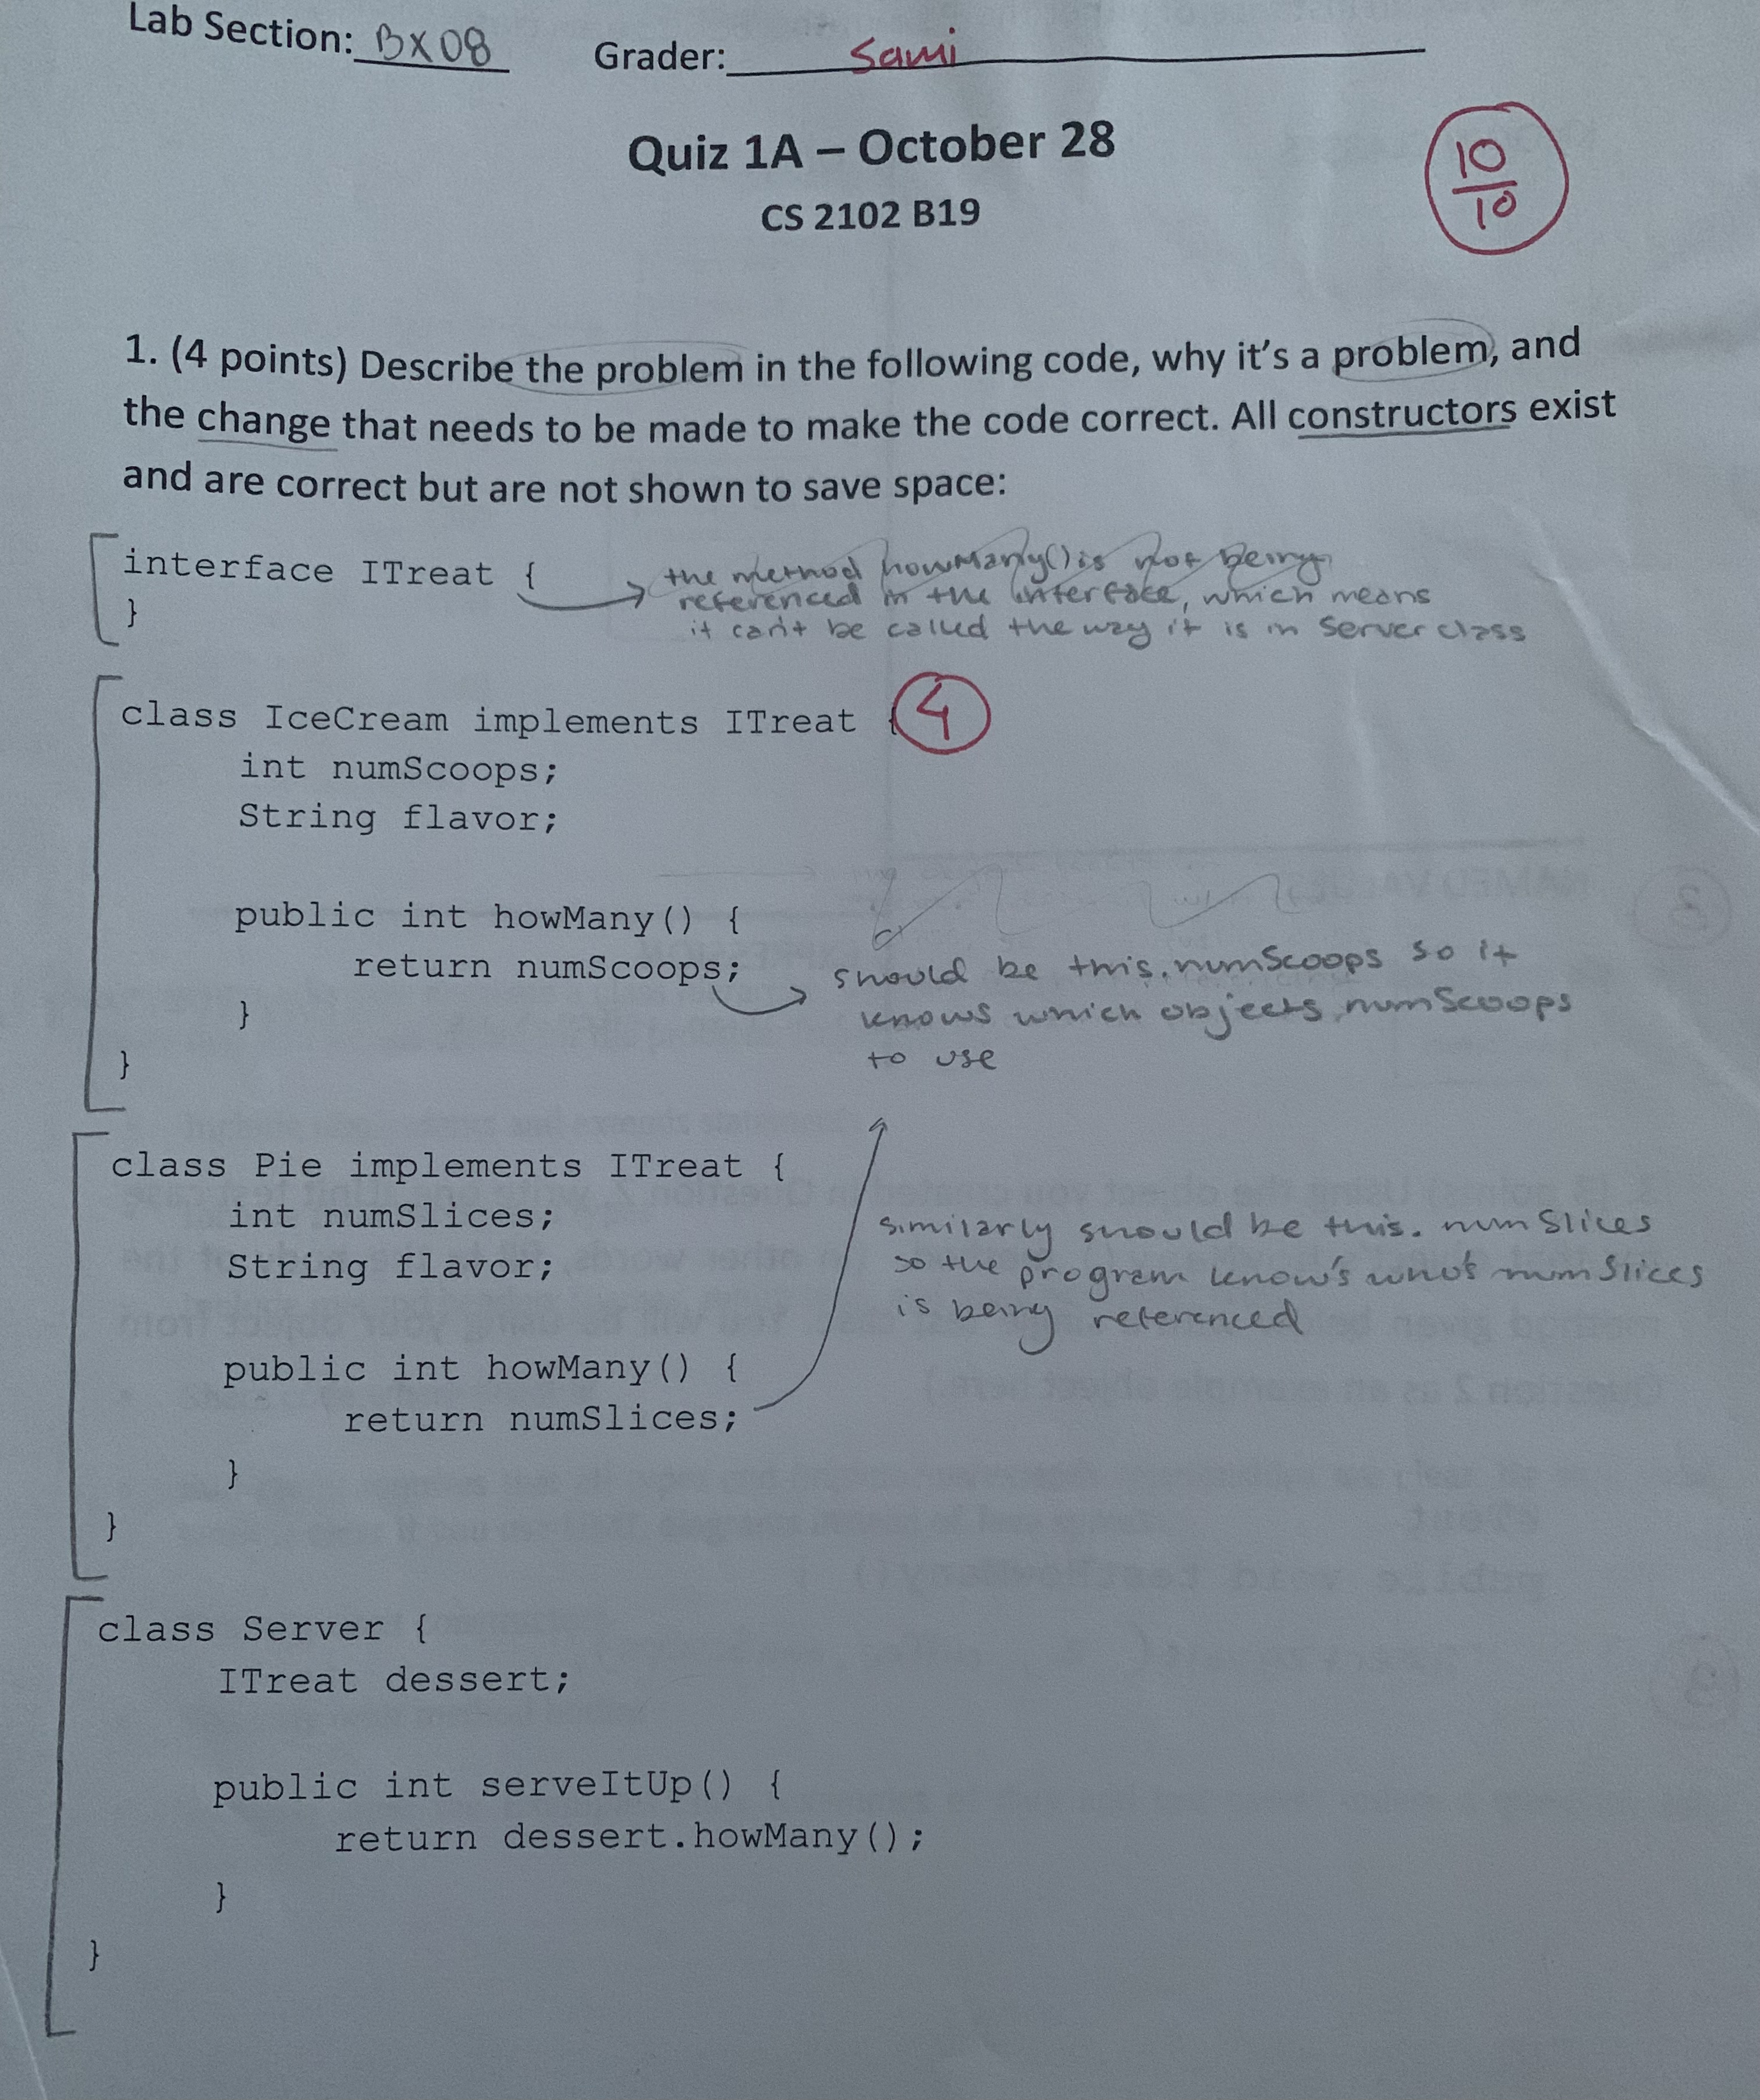 Lab Section: BX08 Grader: Sami
Quiz 1A – October 28
10
10
CS 2102 B19
1. (4 points) Describe the problem in the following code, why it's a problem, and
the change that needs to be made to make the code correct. All constructors exist
and are correct but are not shown to save space:
interface ITreat {
}
the method howMany() is not being
referenced in the interface, which means
it can't be called the way it is in Server class
class IceCream implements ITreat {
4
int numScoops;
String flavor;
public int howMany() {
return numScoops;
}
}
should be this.numScoops so it
knows which objects numScoops
to use
class Pie implements ITreat {
int numSlices;
String flavor;
public int howMany() {
return numSlices;
}
}
similarly should be this.numSlices
so the program know's who's numSlices
is being referenced
class Server {
ITreat dessert;
public int serveItUp() {
return dessert.howMany();
}
}